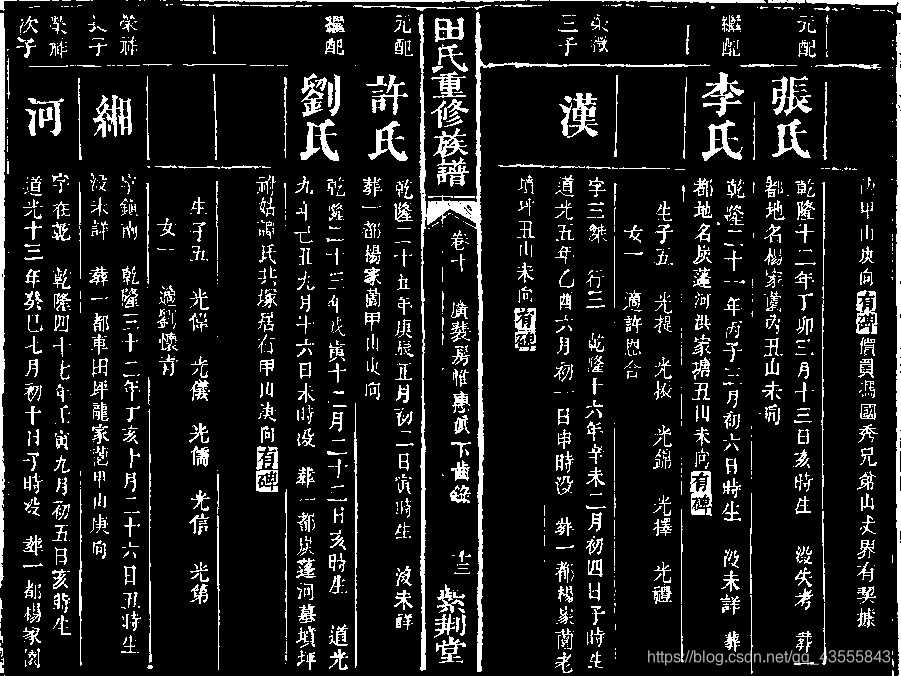 甲山庚向有碑價買馮國秀兄弟山丈界有契據
元配
張氏
乾隆十二年丁卯三月十三日亥時生 沒失考 葬一
都地名楊家薗丙丑山未向
繼配
李氏
乾隆二十一年丙子三月初六日時生 沒未詳 葬一
都地名炭蓬河洪家塘丑山未向有碑
生子五 光提 光拔 光錦 光擇 光禮
女一 適許恩合
三子
漢
字三傑 行三 乾隆十六年辛未二月初四日子時生
道光五年乙酉六月初一日申時沒 葬一都楊家薗老
墳坪丑山未向有碑
田氏重修族譜
卷十
下齒錄
十三
紫荆堂
元配
許氏
乾隆二十五年庚辰正月初二日寅時生 沒未詳
葬一都楊家薗甲山庚向
繼配
劉氏
乾隆二十三年戊寅十二月二十二日亥時生 道光
九年己丑九月十六日未時沒 葬一都炭蓬河墓墳坪
祔姑譚氏共塚居右甲山庚向有碑
生子五 光倬 光儀 光儒 光信 光第
女一 適劉懷青
榮祥
長子
緗
乾隆三十二年丁亥十月二十六日丑時生
沒未詳 葬一都車田坪龍家薗甲山庚向
榮祥
次子
河
字在乾 乾隆四十七年壬寅九月初五日亥時生
道光十三年癸巳七月初十日子時沒 葬一都楊家薗
https://blog.csdn.net/qq_43555843